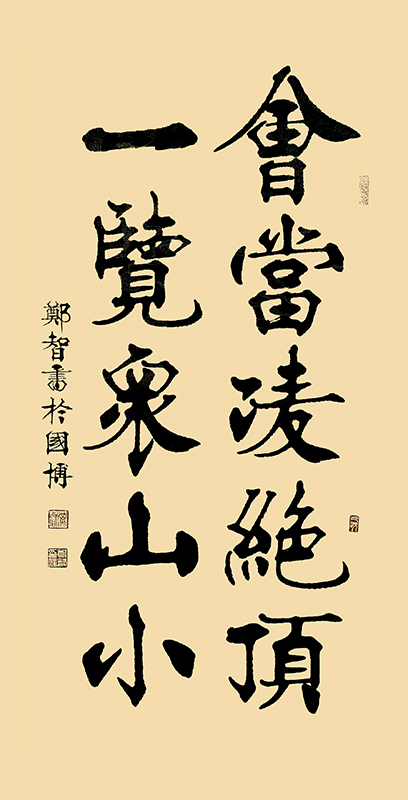 會當凌絶頂
一覽衆山小
鄭智書於國博